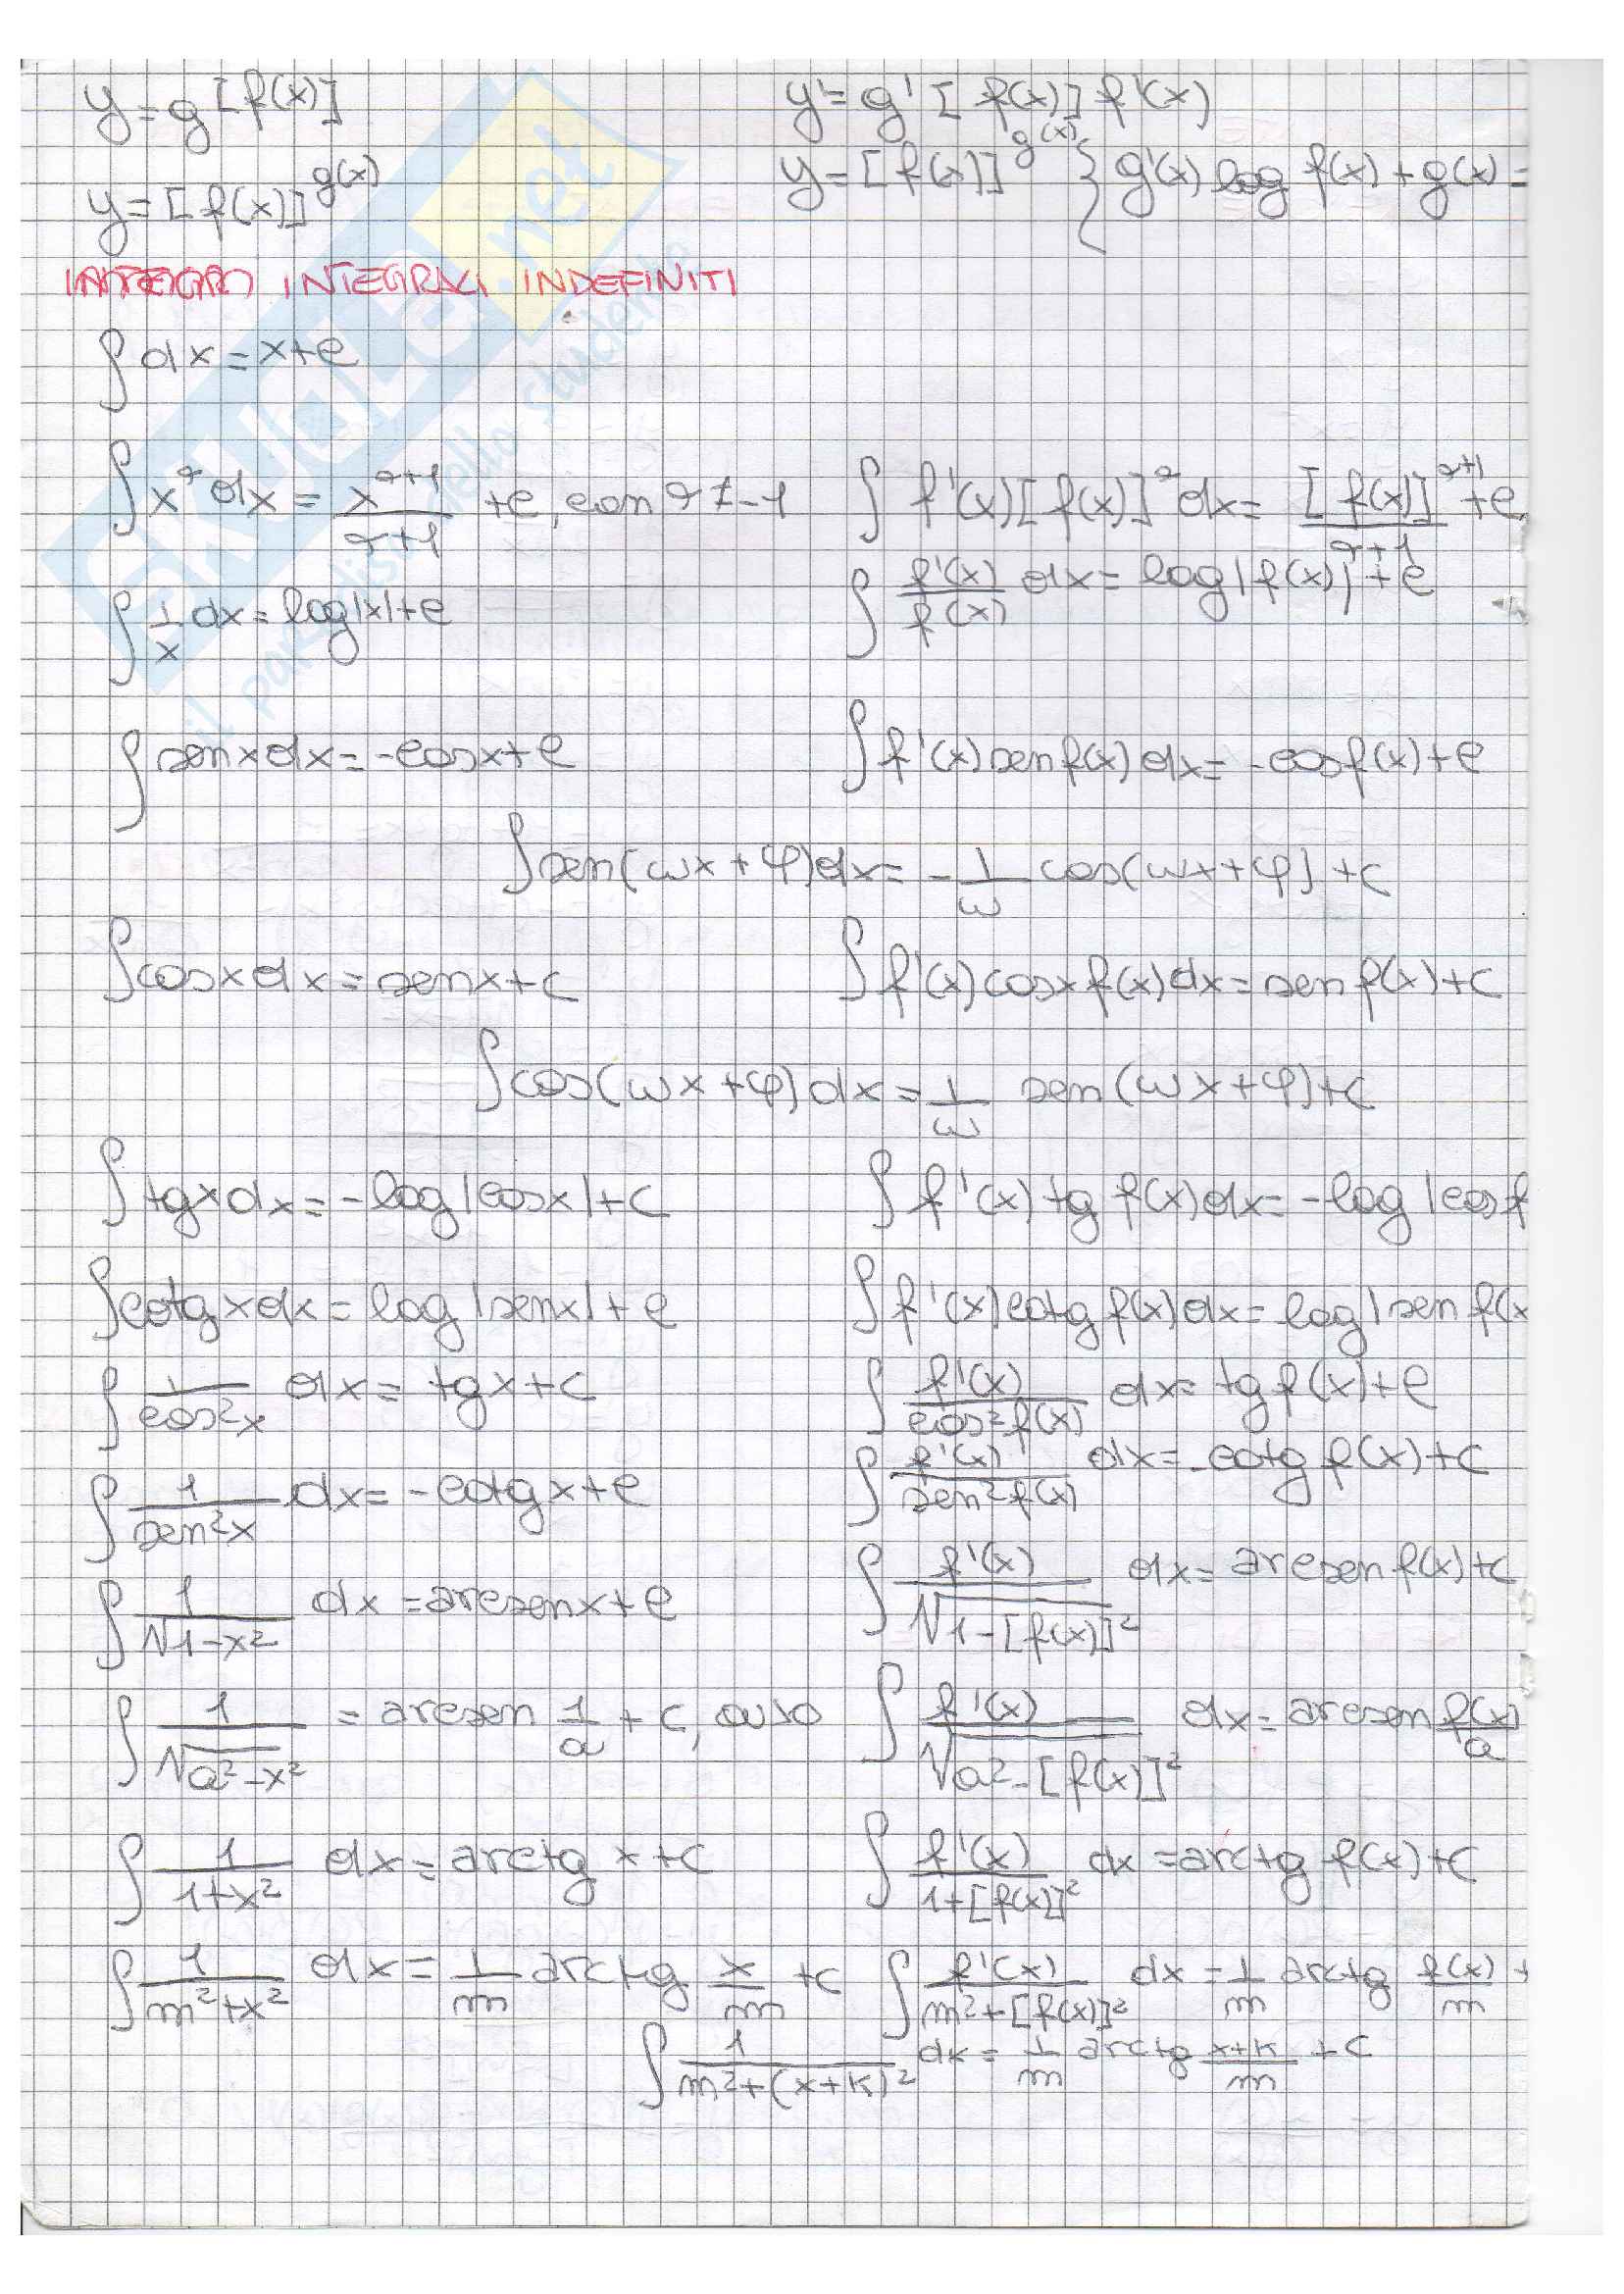 y = g[f(x)]    y' = g'[f(x)] f'(x)
y = [f(x)]^g(x)    y = [f(x)]^g(x) { g'(x) log f(x) + g(x) =
INTEGRALI INDEFINITI
∫ dx = x + c
∫ x^a dx = x^(a+1)/(a+1) + c, con a ≠ -1    ∫ f'(x)[f(x)]^a dx = [f(x)]^(a+1)/(a+1) + c,
∫ 1/x dx = log|x| + c    ∫ f'(x)/f(x) dx = log|f(x)| + c
∫ senx dx = -cosx + c    ∫ f'(x) sen f(x) dx = -cos f(x) + c
∫ sen(ωx + φ) dx = -1/ω cos(ωx + φ) + c
∫ cosx dx = senx + c    ∫ f'(x) cosx f(x) dx = sen f(x) + c
∫ cos(ωx + φ) dx = 1/ω sen(ωx + φ) + c
∫ tgx dx = -log|cosx| + c    ∫ f'(x) tg f(x) dx = -log|cos f
∫ cotg x dx = log|senx| + c    ∫ f'(x) cotg f(x) dx = log|sen f(x
∫ 1/cos²x dx = tgx + c    ∫ f'(x)/cos²f(x) dx = tg f(x) + c
∫ 1/sen²x dx = -cotg x + c    ∫ f'(x)/sen²f(x) dx = -cotg f(x) + c
∫ 1/√1-x² dx = arcsenx + c    ∫ f'(x)/√1-[f(x)]² dx = arcsen f(x) + c
∫ 1/√a²-x² = arcsen 1/a + c,    ∫ f'(x)/√a²-[f(x)]² dx = arcsen f(x)/a
∫ 1/1+x² dx = arctg x + c    ∫ f'(x)/1+[f(x)]² dx = arctg f(x) + c
∫ 1/m²+x² dx = 1/m arctg x/m + c    ∫ f'(x)/m²+[f(x)]² dx = 1/m arctg f(x)/m +
∫ 1/m²+(x+k)² dx = 1/m arctg x+k/m + c
skuola.net
il paradiso dello studente